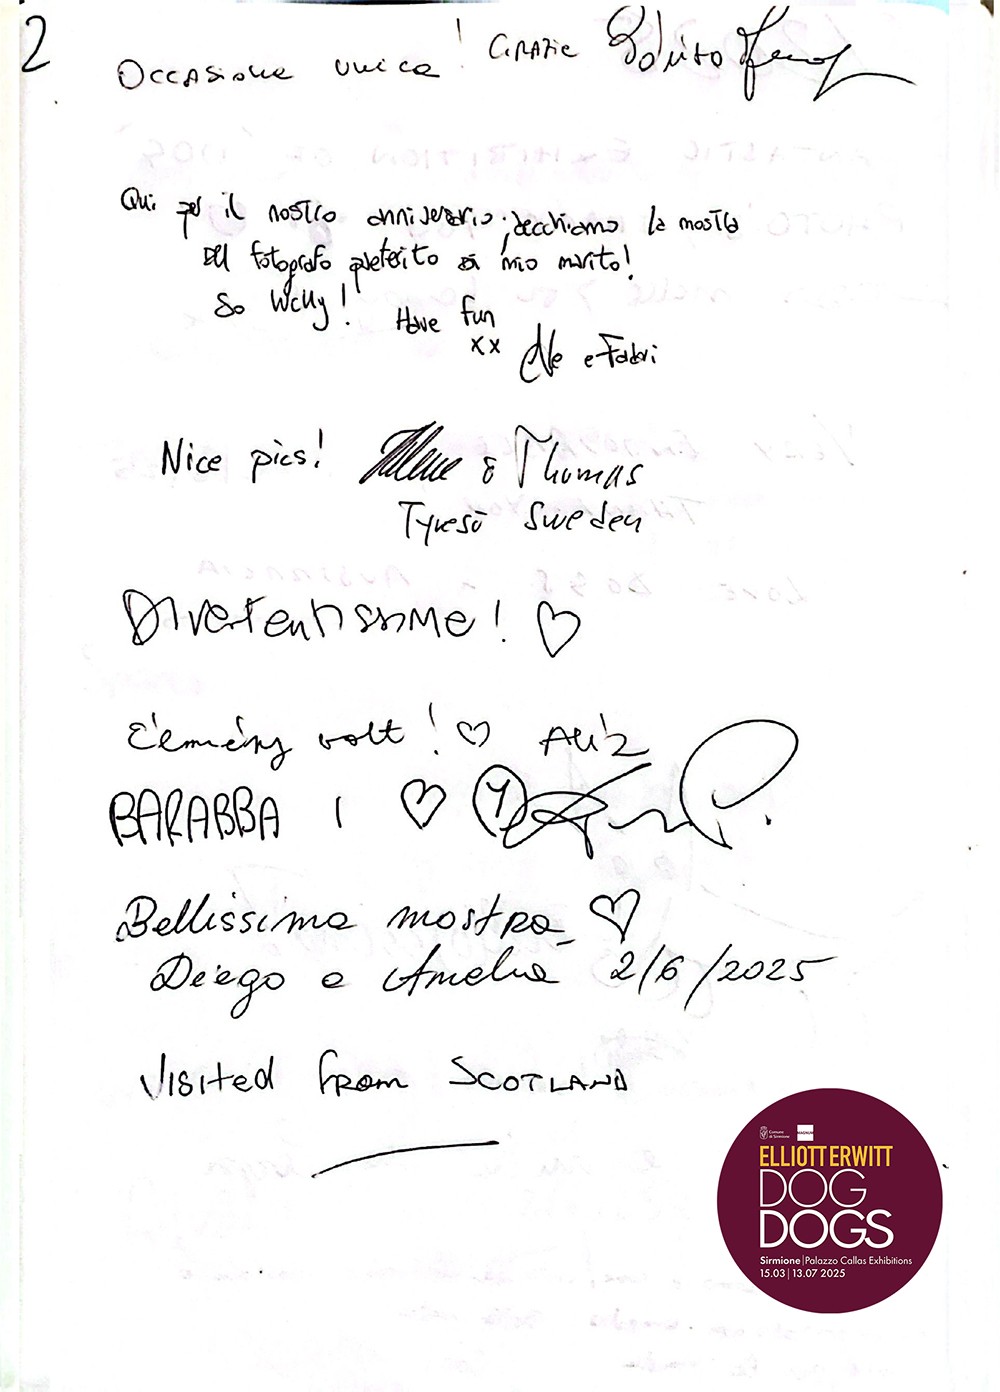 2
Occasione unica! GRAZIE
Qui per il nostro anniversario; becchiamo la mostra
del fotografo preferito di mio marito!
So Wally! Have fun
xx Ale e Fabri
Nice pics! & Thomas
Tyresö Sweden
Divertentissime! ♡
Élmény volt! ♡ Alíz
BARABBA ! ♡
Bellissima mostra ♡
Diego e Amelia 2/6/2025
Visited from SCOTLAND
Comune
di Sirmione
MAGNUM
ELLIOTT ERWITT
DOG
DOGS
Sirmione | Palazzo Callas Exhibitions
15.03 | 13.07 2025